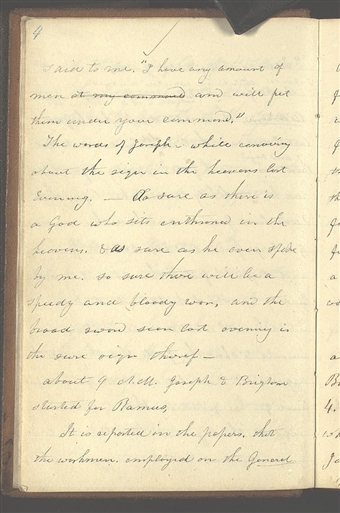 4
said to me. "I have any amount of
men at my command and will put
them under your command."
The words of Joseph - while conversing
about the sign in the heavens last
evening. — As sure as there is
a God who sits enthroned in the
heavens. & as sure as he ever spoke
by me, so sure there will be a
speedy and bloody war, and the
broad sword seen last evening is
the sure sign thereof —
about 9 A.M. Joseph & Brigham
started for Ramus,
It is reported in the papers, that
the workmen employed on the General